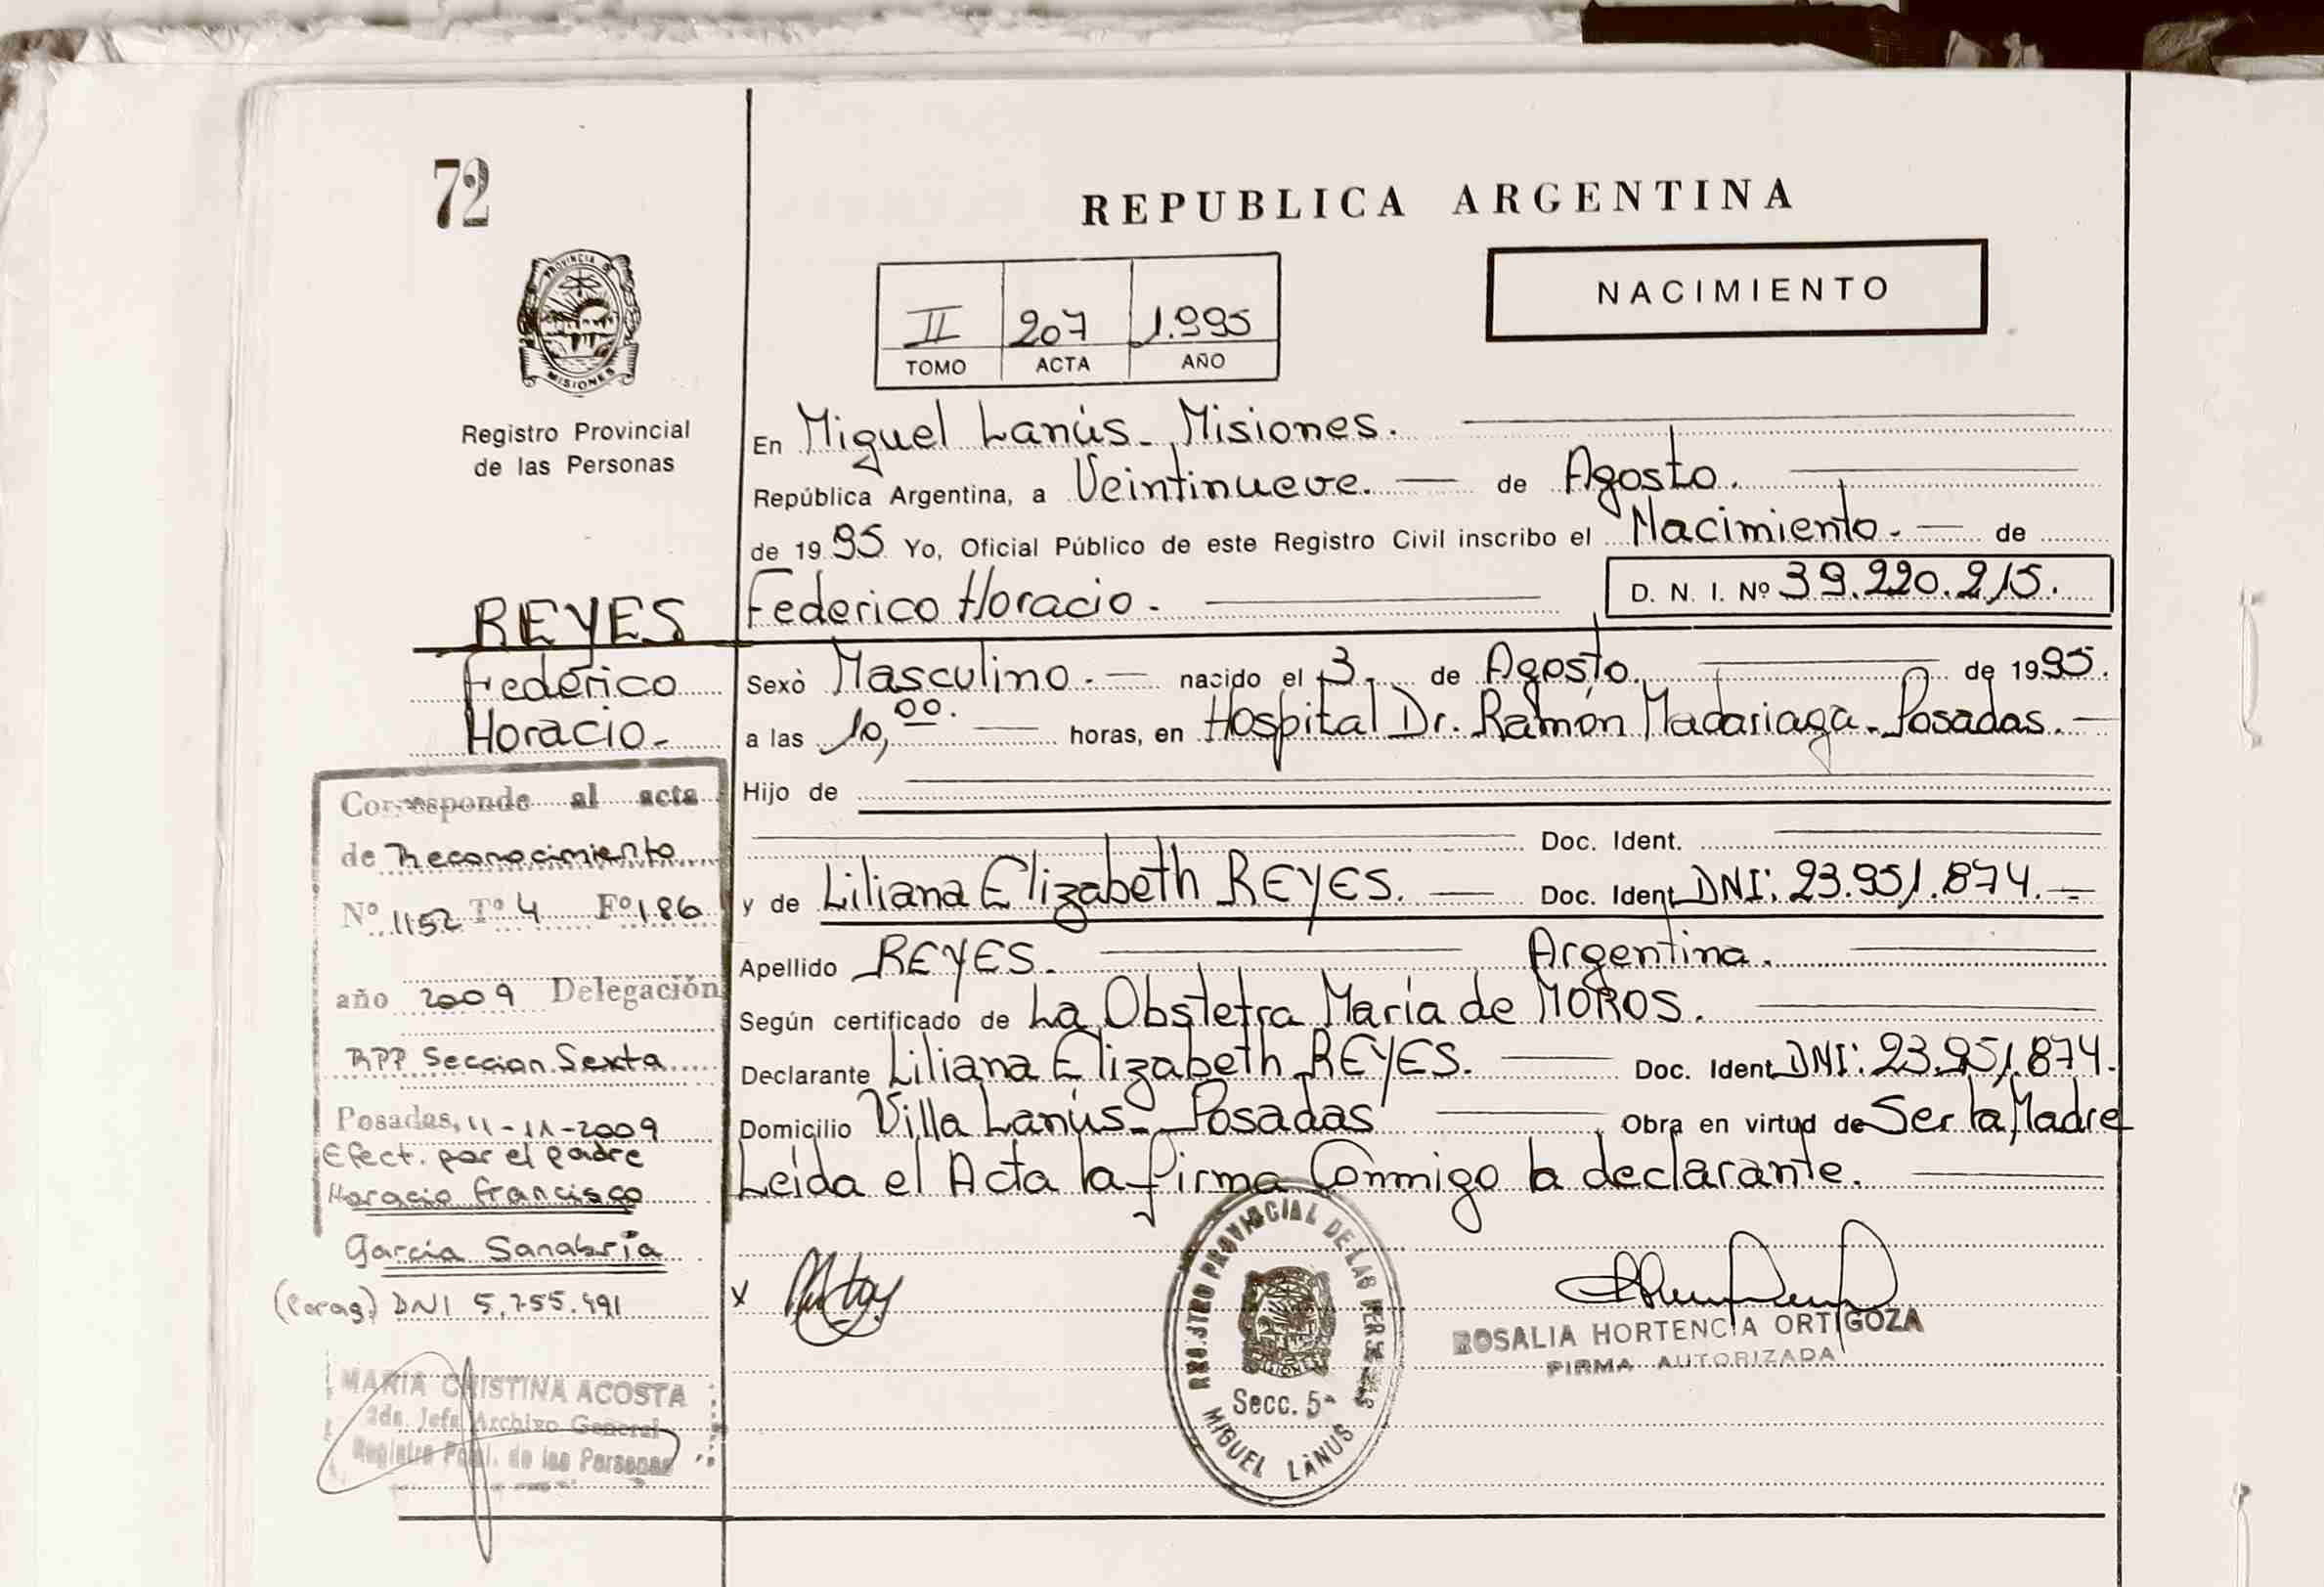 72
REPUBLICA ARGENTINA
NACIMIENTO
II 207 1.995
TOMO ACTA AÑO
PROVINCIA D
MISIONES
Registro Provincial
de las Personas
En Miguel Lanús - Misiones.
República Argentina, a Veintinueve. — de Agosto.
de 1995 Yo, Oficial Público de este Registro Civil inscribo el Nacimiento. — de
Federico Horacio. D. N. I. Nº 39.220.215.
REYES
Federico
Horacio.-
Sexo Masculino. — nacido el 3 de Agosto. de 1995.
a las 10,00. — horas, en Hospital Dr. Ramón Madariaga - Posadas. —
Hijo de
Doc. Ident.
y de Liliana Elizabeth REYES. — Doc. Ident. DNI: 23.951.874. =
Apellido REYES. Argentina.
Según certificado de La Obstetra María de MOROS.
Declarante Liliana Elizabeth REYES. — Doc. Ident. DNI: 23.951.874.
Domicilio Villa Lanús - Posadas Obra en virtud de Ser la Madre
Leída el Acta la firma Conmigo la declarante.
Corresponde al acta
de Reconocimiento
Nº 1152 Tº 4 Fº 186
año 2009 Delegación
RPP Seccion Sexta
Posadas, 11-11-2009
Efect. por el padre
Horacio Francisco
García Sanabria
(Parag.) DNI 5.755.491
MARIA CRISTINA ACOSTA
2da. Jefa Archivo General
Registro Pcial. de las Personas
x
REGISTRO PROVINCIAL DE LAS PERSONAS
MISIONES
Secc. 5ª
MIGUEL LANUS
ROSALIA HORTENCIA ORTIGOZA
FIRMA AUTORIZADA